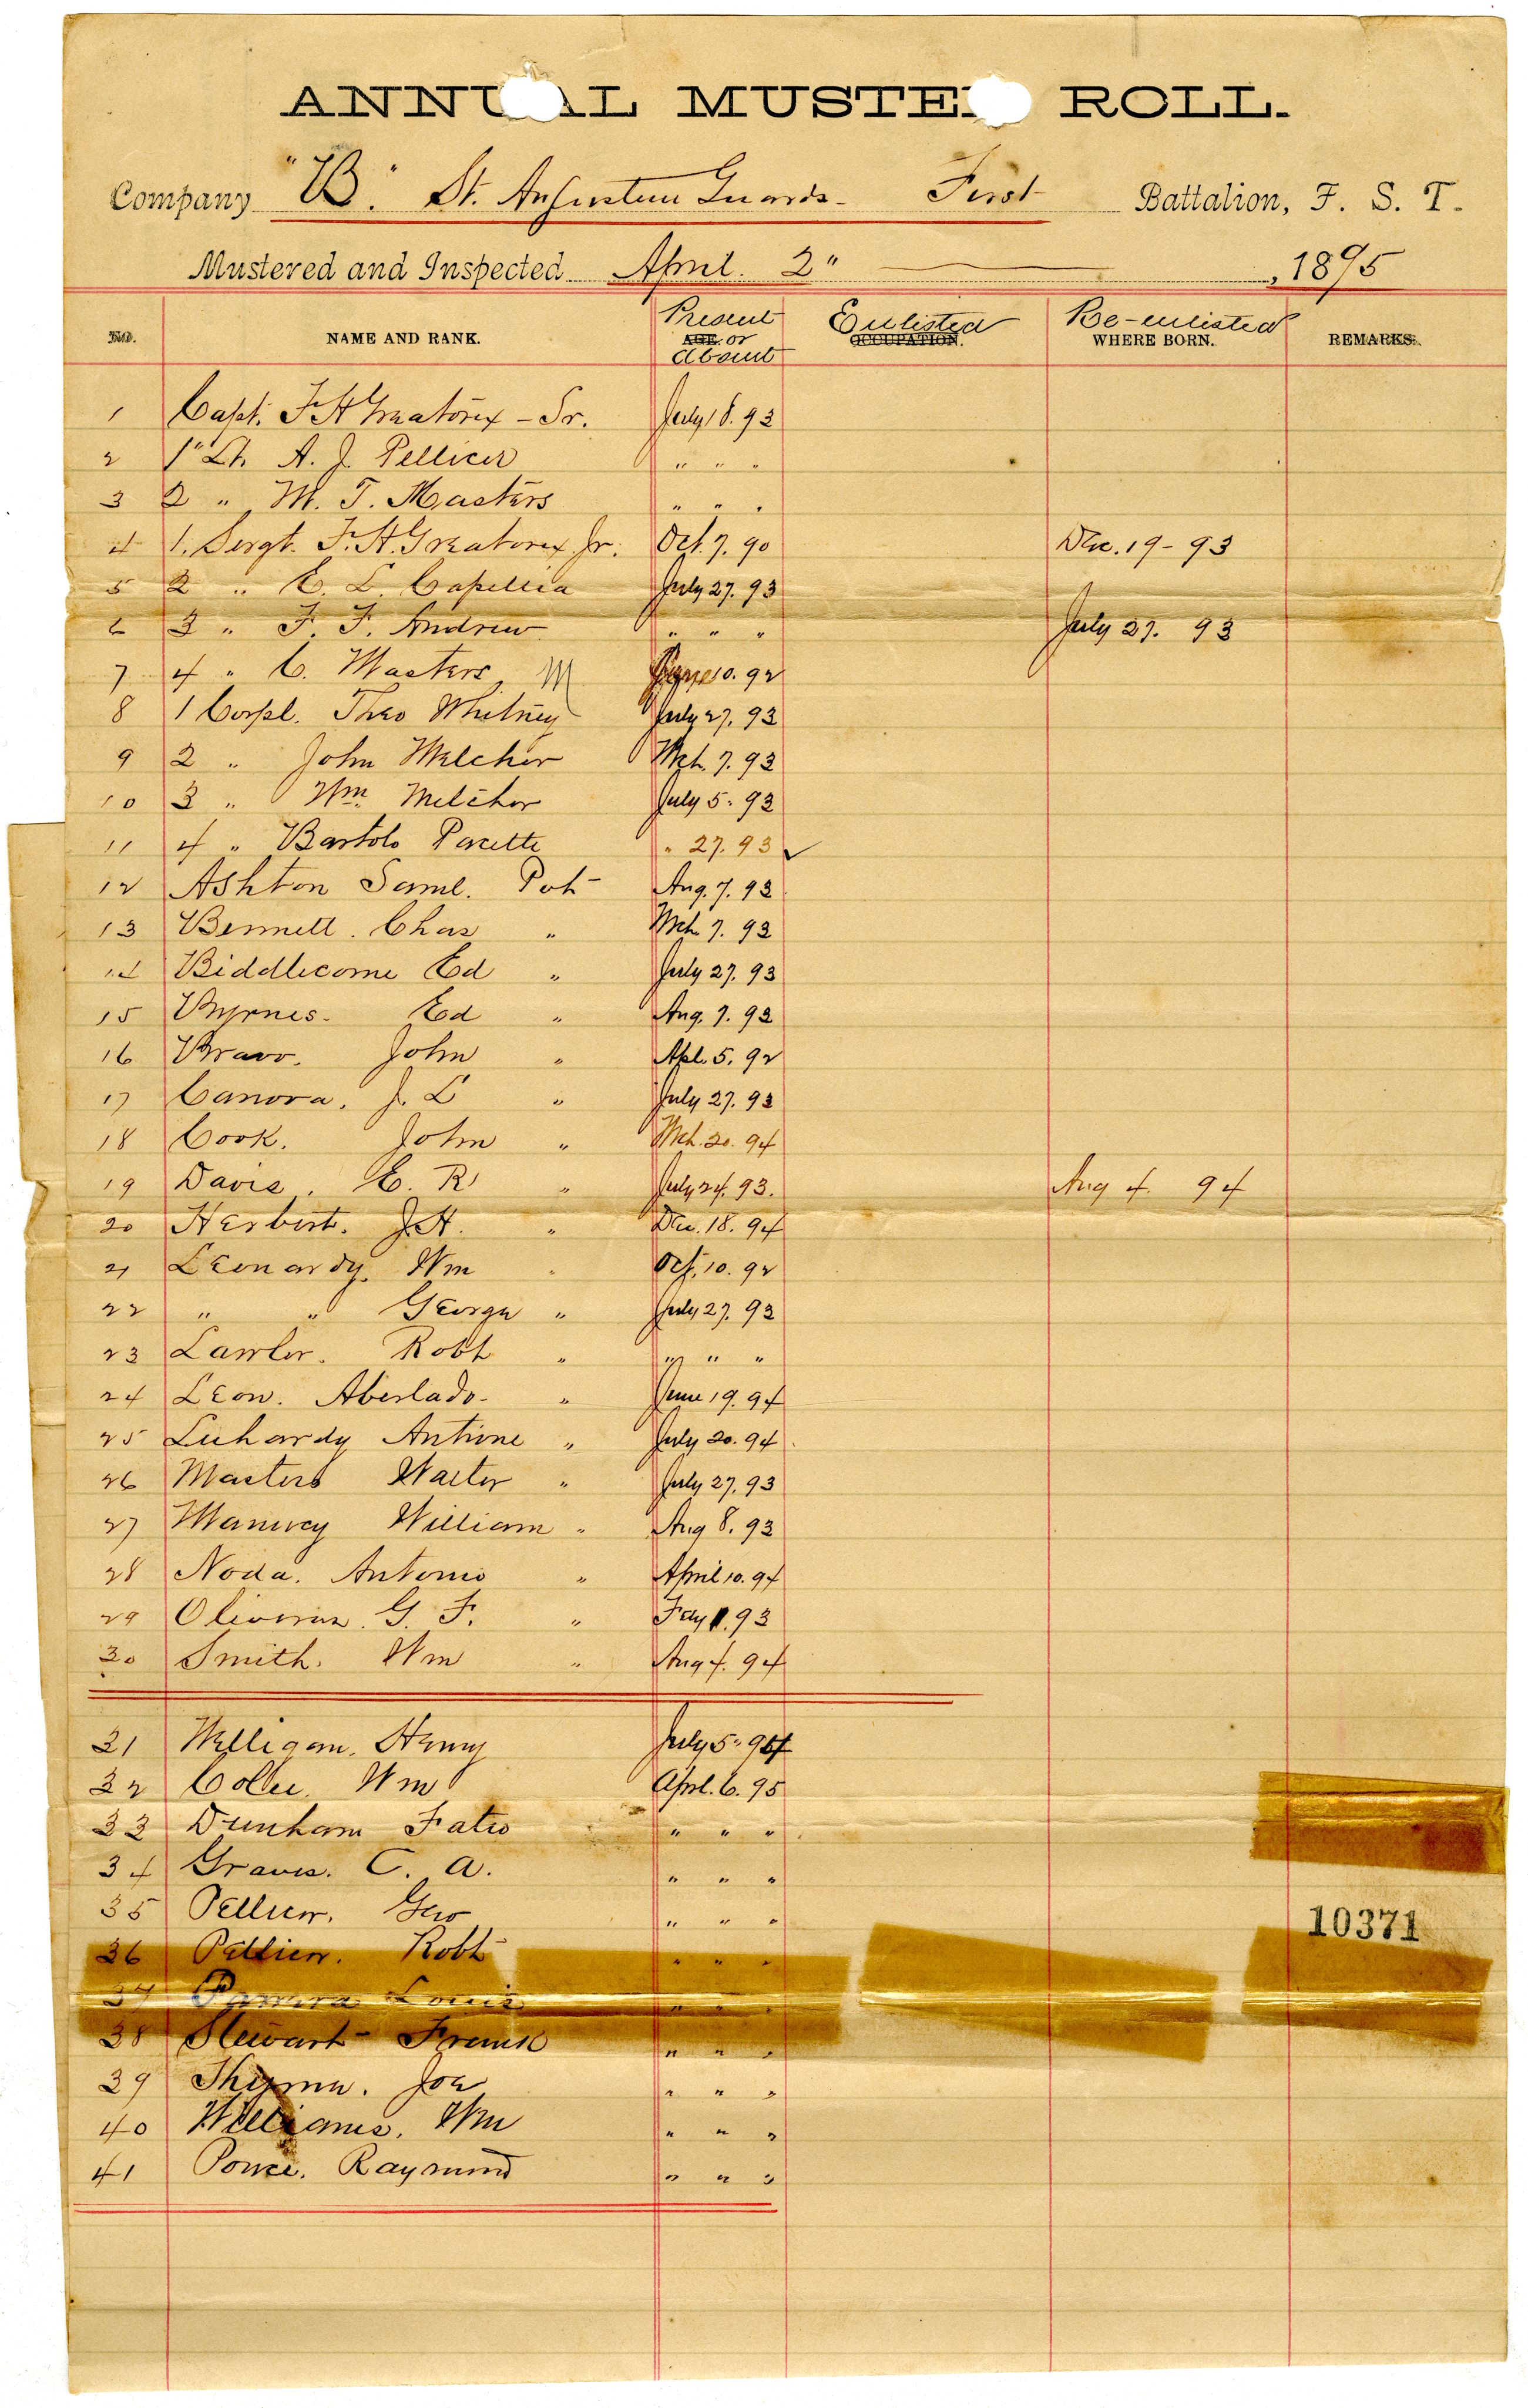 ANNUAL MUSTER ROLL.
Company "B" St. Augustine Guards - First Battalion, F. S. T.
Mustered and Inspected April. 2" , 1895
NO. NAME AND RANK. Present AGE. or absent Enlisted OCCUPATION. Re-enlisted WHERE BORN. REMARKS.
1 Capt. F H Greatorex - Sr. July 18. 93
2 1" Lt. A. J. Pellicer " " "
3 2 " M. T. Masters " " "
4 1. Sergt. F. H. Greatorex Jr. Oct. 7. 90 Dec. 19 - 93
5 2 " E. L. Capella July 27. 93
6 3 " F. F. Andrew " " " July 27. 93
7 4 " C. Masters M 10. 92
8 1 Corpl. Theo Whitney July 27. 93
9 2 " John Melchor Mch. 7. 93
10 3 " Wm Melchor July 5. 93
11 4 " Bartolo Pacette " 27. 93 ✓
12 Ashton Saml. Pvt Aug. 7. 93
13 Bennett. Chas " Mch 7. 93
14 Biddlecome Ed " July 27. 93
15 Byrnes. Ed " Aug. 7. 93
16 Bravo. John " Apl. 5. 92
17 Canova. J. L " July 27. 93
18 Cook. John " Mch. 20. 94
19 Davis. E. R " July 24. 93. Aug 4. 94
20 Herbert. J. H. " Dec. 18. 94
21 Leonardy. Wm " Oct. 10. 92
22 " " George " July 27. 93
23 Lawler. Robt " " " "
24 Leon. Aberlado. " June 19. 94
25 Luhardy Antione " July 20. 94
26 Masters Walter " July 27. 93
27 Manucy William " Aug 8. 93
28 Noda. Antonio " April 10. 94
29 Oliveros. G. F. " 93
30 Smith. Wm " Aug 4. 94
31 Welligan. Henry July 5. 94
32 Colee. Wm Aprl. 6. 95
33 Dunham Fatio " " "
34 Graves. C. A. " " "
35 Pellicer. Geo " " "
36 Pellicer. Robt " " "
37 Louis " " "
38 Stewart Frank " " "
39 Joe " " "
40 Williams. Wm " " "
41 Ponce. Raymond " " "
10371